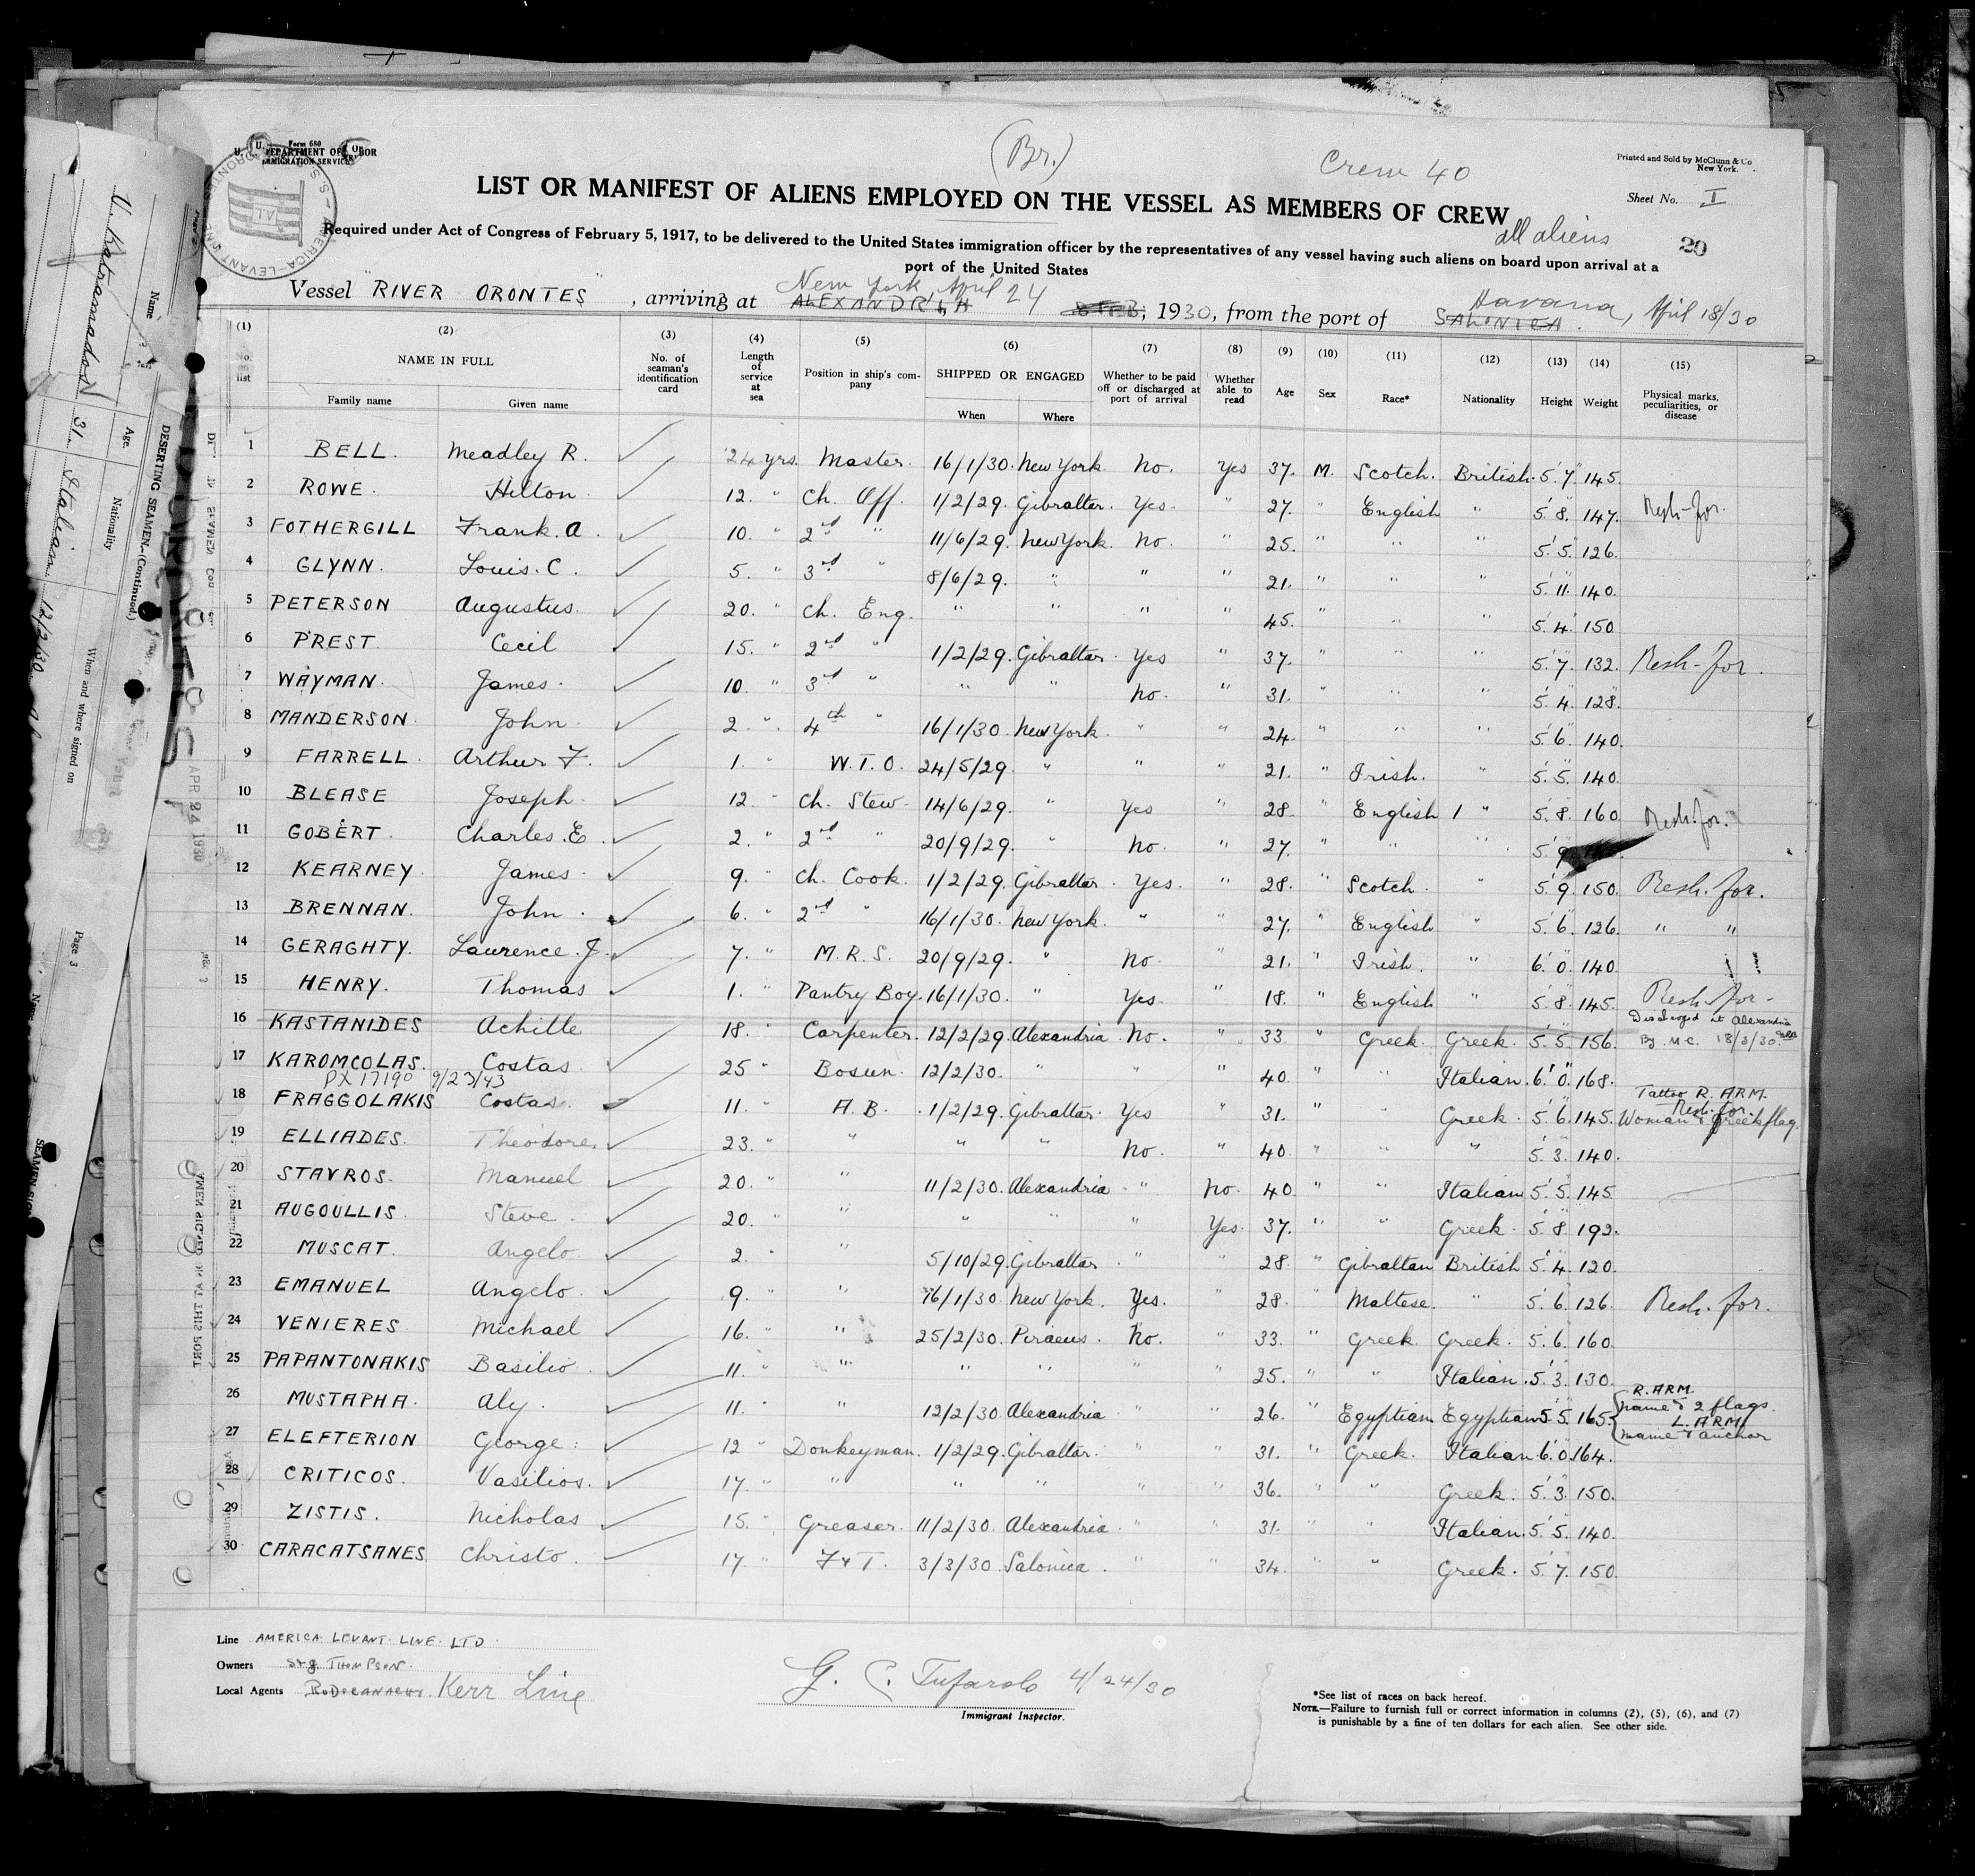 Form 680
U. S. DEPARTMENT OF LABOR
IMMIGRATION SERVICE
(Br.)
Crew 40
Printed and Sold by McClunn & Co
New York.
LIST OR MANIFEST OF ALIENS EMPLOYED ON THE VESSEL AS MEMBERS OF CREW
Sheet No. I
all aliens
20
Required under Act of Congress of February 5, 1917, to be delivered to the United States immigration officer by the representatives of any vessel having such aliens on board upon arrival at a
port of the United States
New York, April 24
Havana, April 18/30
Vessel "RIVER ORONTES", arriving at ALEXANDRIA, 1930, from the port of SALONICA.
(1) (2) (3) (4) (5) (6) (7) (8) (9) (10) (11) (12) (13) (14) (15)
No. on list NAME IN FULL Family name Given name No. of seaman's identification card Length of service at sea Position in ship's company SHIPPED OR ENGAGED When Where Whether to be paid off or discharged at port of arrival Whether able to read Age Sex Race* Nationality Height Weight Physical marks, peculiarities, or disease
1 BELL. Meadley R. 24 yrs. Master. 16/1/30. New York. No. Yes 37. M. Scotch. British. 5'.7" 145.
2 ROWE. Hilton. 12. " Ch. Off. 1/2/29. Gibraltar. Yes. " 27. " English " 5'.8". 147. Resh-for.
3 FOTHERGILL Frank. A. 10. " 2nd " 11/6/29. New York. No. " 25. " " " 5'.5" 126.
4 GLYNN. Louis. C. 5. " 3rd " 8/6/29. " " " 21. " " " 5'.11". 140.
5 PETERSON Augustus. 20. " Ch. Eng. " " " " 45. " " " 5'.4" 150
6 PREST. Cecil 15. " 2nd " 1/2/29. Gibraltar. Yes " 37. " " " 5'.7". 132. Resh-for.
7 WAYMAN. James. 10. " 3rd " " " No. " 31. " " " 5'.4" 128.
8 MANDERSON. John. 2. " 4th " 16/1/30. New York. " " 24. " " " 5'.6". 140.
9 FARRELL. Arthur F. 1. " W.T.O. 24/5/29. " " " 21. " Irish. " 5'.5". 140.
10 BLEASE Joseph. 12. " Ch. Stew. 14/6/29. " Yes " 28. " English 1 " 5'.8" 160. Resh.for.
11 GOBERT. Charles. E. 2. " 2nd " 20/9/29. " No. " 27. " " " 5'.9
12 KEARNEY James. 9. " Ch. Cook. 1/2/29. Gibraltar. Yes. " 28. " Scotch. " 5'.9. 150. Resh.for.
13 BRENNAN. John. 6. " 2nd " 16/1/30. New York. " " 27. " English " 5'.6". 126. " "
14 GERAGHTY. Laurence. J. 7. " M.R.S. 20/9/29. " No. " 21. " Irish. " 6'.0". 140.
15 HENRY. Thomas 1. " Pantry Boy. 16/1/30. " Yes. " 18. " English " 5'.8". 145. Resh-for-
16 KASTANIDES Achille 18. " Carpenter. 12/2/29. Alexandria No. " 33. " Greek. Greek. 5'.5". 156. Discharged at Alexandria
By M.C. 18/3/30.
17 KAROMCOLAS. Costas. 25 " Bosun. 12/2/30. " " " 40. " " Italian. 6'.0". 168.
PX 17190 9/23/43
18 FRAGGOLAKIS Costas. 11. " A.B. 1/2/29. Gibraltar. Yes " 31. " " Greek. 5'.6". 145. Tattoo R. ARM.
Resh-for.
Woman & Greek flag.
19 ELLIADES. Theodore. 23. " " " " No. " 40. " " " 5'.3". 140.
20 STAVROS. Manuel 20. " " 11/2/30. Alexandria " No. 40. " " Italian 5'.5". 145.
21 AUGOULLIS. Steve. 20. " " " " " Yes. 37. " " Greek. 5'.8" 192.
22 MUSCAT. Angelo 2. " " 5/10/29. Gibraltar " " 28. " Gibraltan British 5'.4". 120.
23 EMANUEL Angelo. 9. " " 16/1/30. New York. Yes. " 28. " Maltese. " 5'.6". 126. Resh.for.
24 VENIERES. Michael 16. " " 25/2/30. Piraeus. No. " 33. " Greek. Greek. 5'.6. 160.
25 PAPANTONAKIS Basilio. 11. " " " " " " 25. " " Italian. 5'.3. 130.
26 MUSTAPHA. Aly. 11. " " 12/2/30. Alexandria " " 26. " Egyptian Egyptian 5'.5". 165. R.ARM.
name & 2 flags.
L.ARM.
name & anchor
27 ELEFTERION George. 12 " Donkeyman. 1/2/29. Gibraltar. " " 31. " Greek. Italian. 6'.0. 164.
28 CRITICOS. Vasilios. 17. " " " " " " 36. " " Greek. 5'.3. 150.
29 ZISTIS. Nicholas 15. " Greaser. 11/2/30. Alexandria " " 31. " " Italian. 5'.5". 140.
30 CARACATSANES Christo. 17. " F & T. 3/3/30. Salonica. " " 34. " " Greek. 5'.7. 150.
Line AMERICA LEVANT LINE LTD.
Owners S & J THOMPSON.
Local Agents RODOCANACHI. Kerr Line
G. C. Tufarolo 4/24/30
Immigrant Inspector.
*See list of races on back hereof.
NOTE.—Failure to furnish full or correct information in columns (2), (5), (6), and (7)
is punishable by a fine of ten dollars for each alien. See other side.
APR 24 1930
DESERTING SEAMEN—(Continued.)
Name
Age.
Nationality
When and where signed on
Page 3
31
Italian
12/2/30